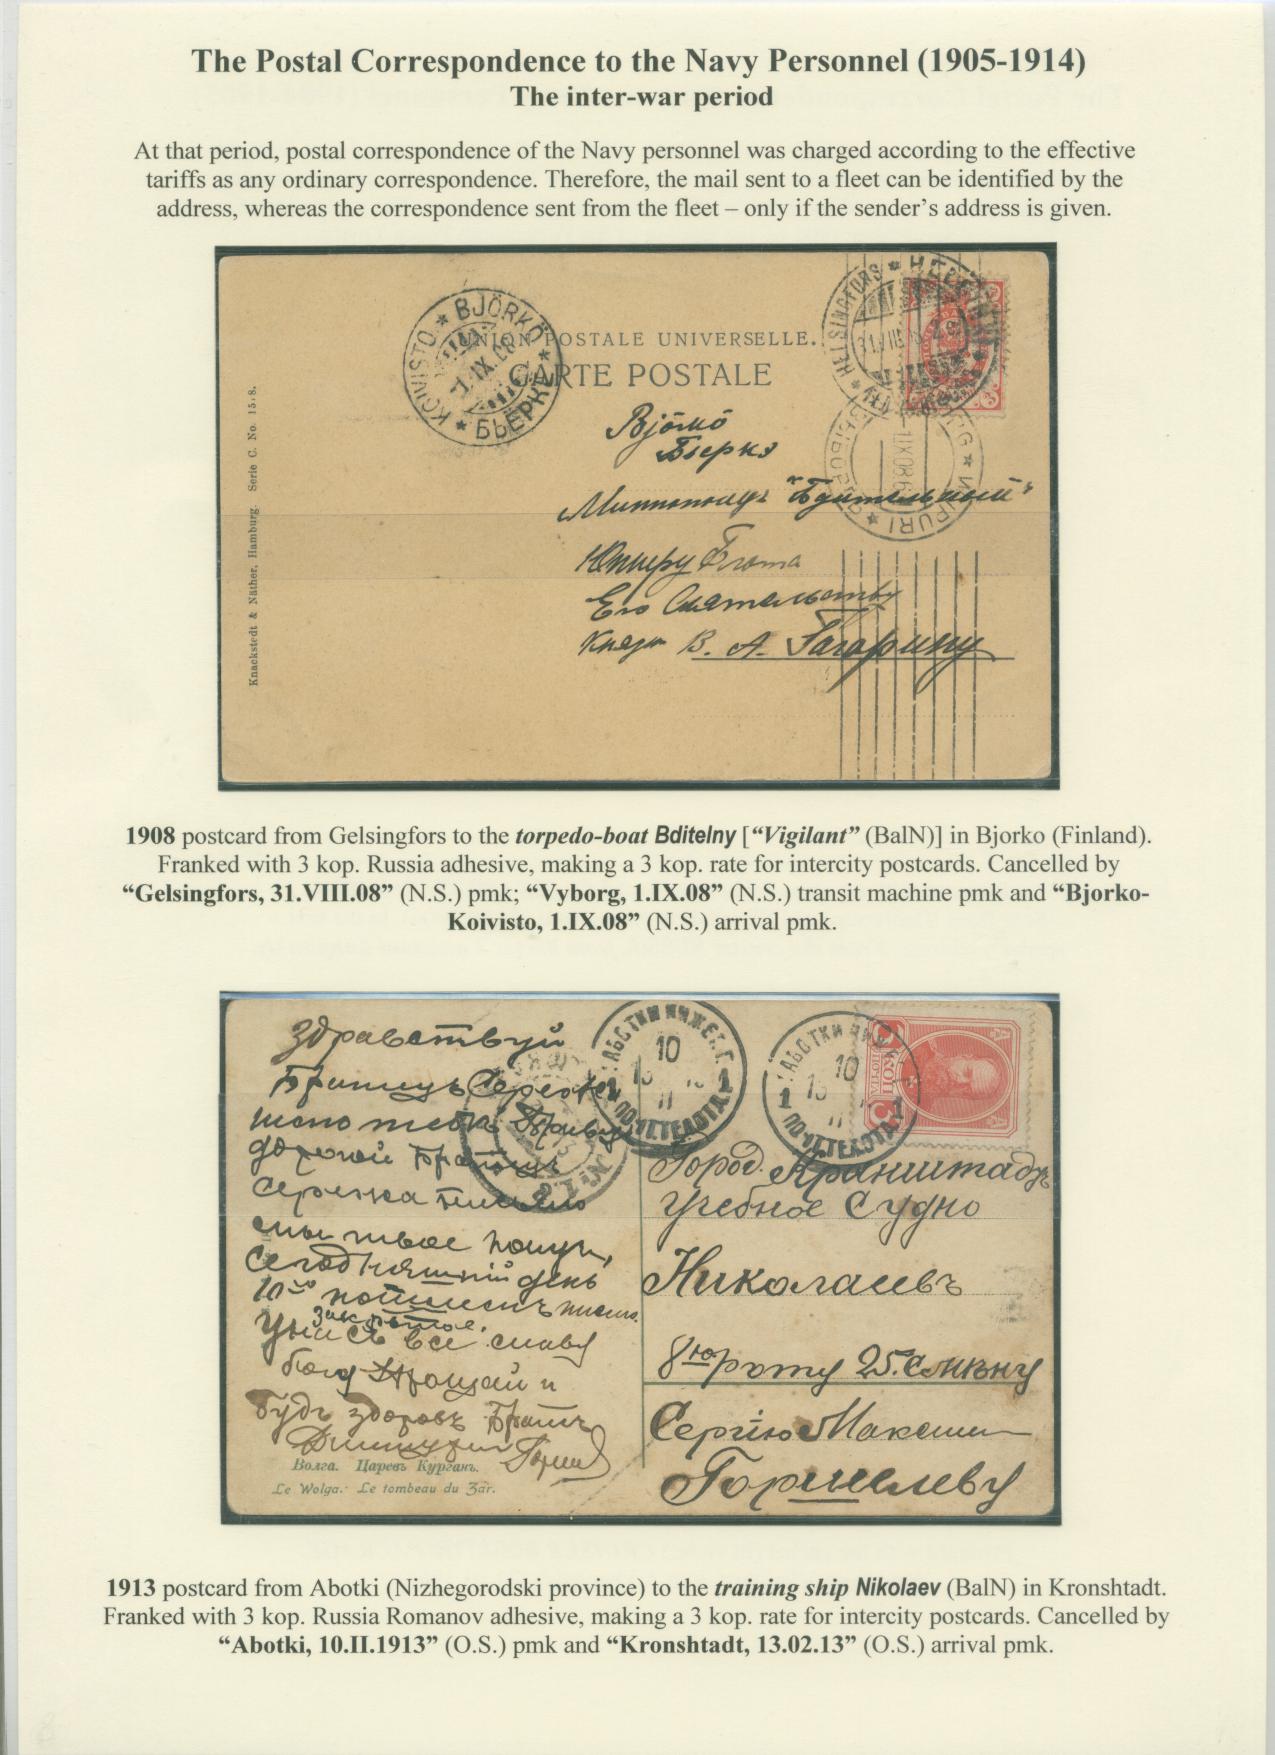 The Postal Correspondence to the Navy Personnel (1905-1914)
The inter-war period
At that period, postal correspondence of the Navy personnel was charged according to the effective
tariffs as any ordinary correspondence. Therefore, the mail sent to a fleet can be identified by the
address, whereas the correspondence sent from the fleet – only if the sender’s address is given.
KOIVISTO * BJÖRKÖ * БЬЁРКЕ *
1.IX.08
UNION POSTALE UNIVERSELLE.
CARTE POSTALE
HELSINGFORS * HELSINKI
31.VIII
1.IX.08
WIIPURI
Knackstedt & Näther, Hamburg. Serie C. No. 15.8.
Бьеркэ
Миноносецъ "Бдительный"
Юнкеру Флота
Его Сиятельству
Князю В. А. Гагарину
1908 postcard from Gelsingfors to the torpedo-boat Bditelny [“Vigilant” (BalN)] in Bjorko (Finland).
Franked with 3 kop. Russia adhesive, making a 3 kop. rate for intercity postcards. Cancelled by
“Gelsingfors, 31.VIII.08” (N.S.) pmk; “Vyborg, 1.IX.08” (N.S.) transit machine pmk and “Bjorko-
Koivisto, 1.IX.08” (N.S.) arrival pmk.
Здравствуй
Братецъ
дорогой Братецъ
письмо
Сегодняшній день
10го
письмо
закрытое.
все слава
богу Прощай и
будь здоровъ Братъ
Волга. Царевъ Курганъ.
Le Wolga. Le tombeau du Zar.
10
1 ПОЧТ.ТЕЛ.ОТД. 1
10
1 ПОЧТ.ТЕЛ.ОТД. 1
Город. Кранштадъ
Учебное Судно
Николаевъ
8ю роту 25. Смѣну
Сергѣю Максим
Горшелеву
1913 postcard from Abotki (Nizhegorodski province) to the training ship Nikolaev (BalN) in Kronshtadt.
Franked with 3 kop. Russia Romanov adhesive, making a 3 kop. rate for intercity postcards. Cancelled by
“Abotki, 10.II.1913” (O.S.) pmk and “Kronshtadt, 13.02.13” (O.S.) arrival pmk.